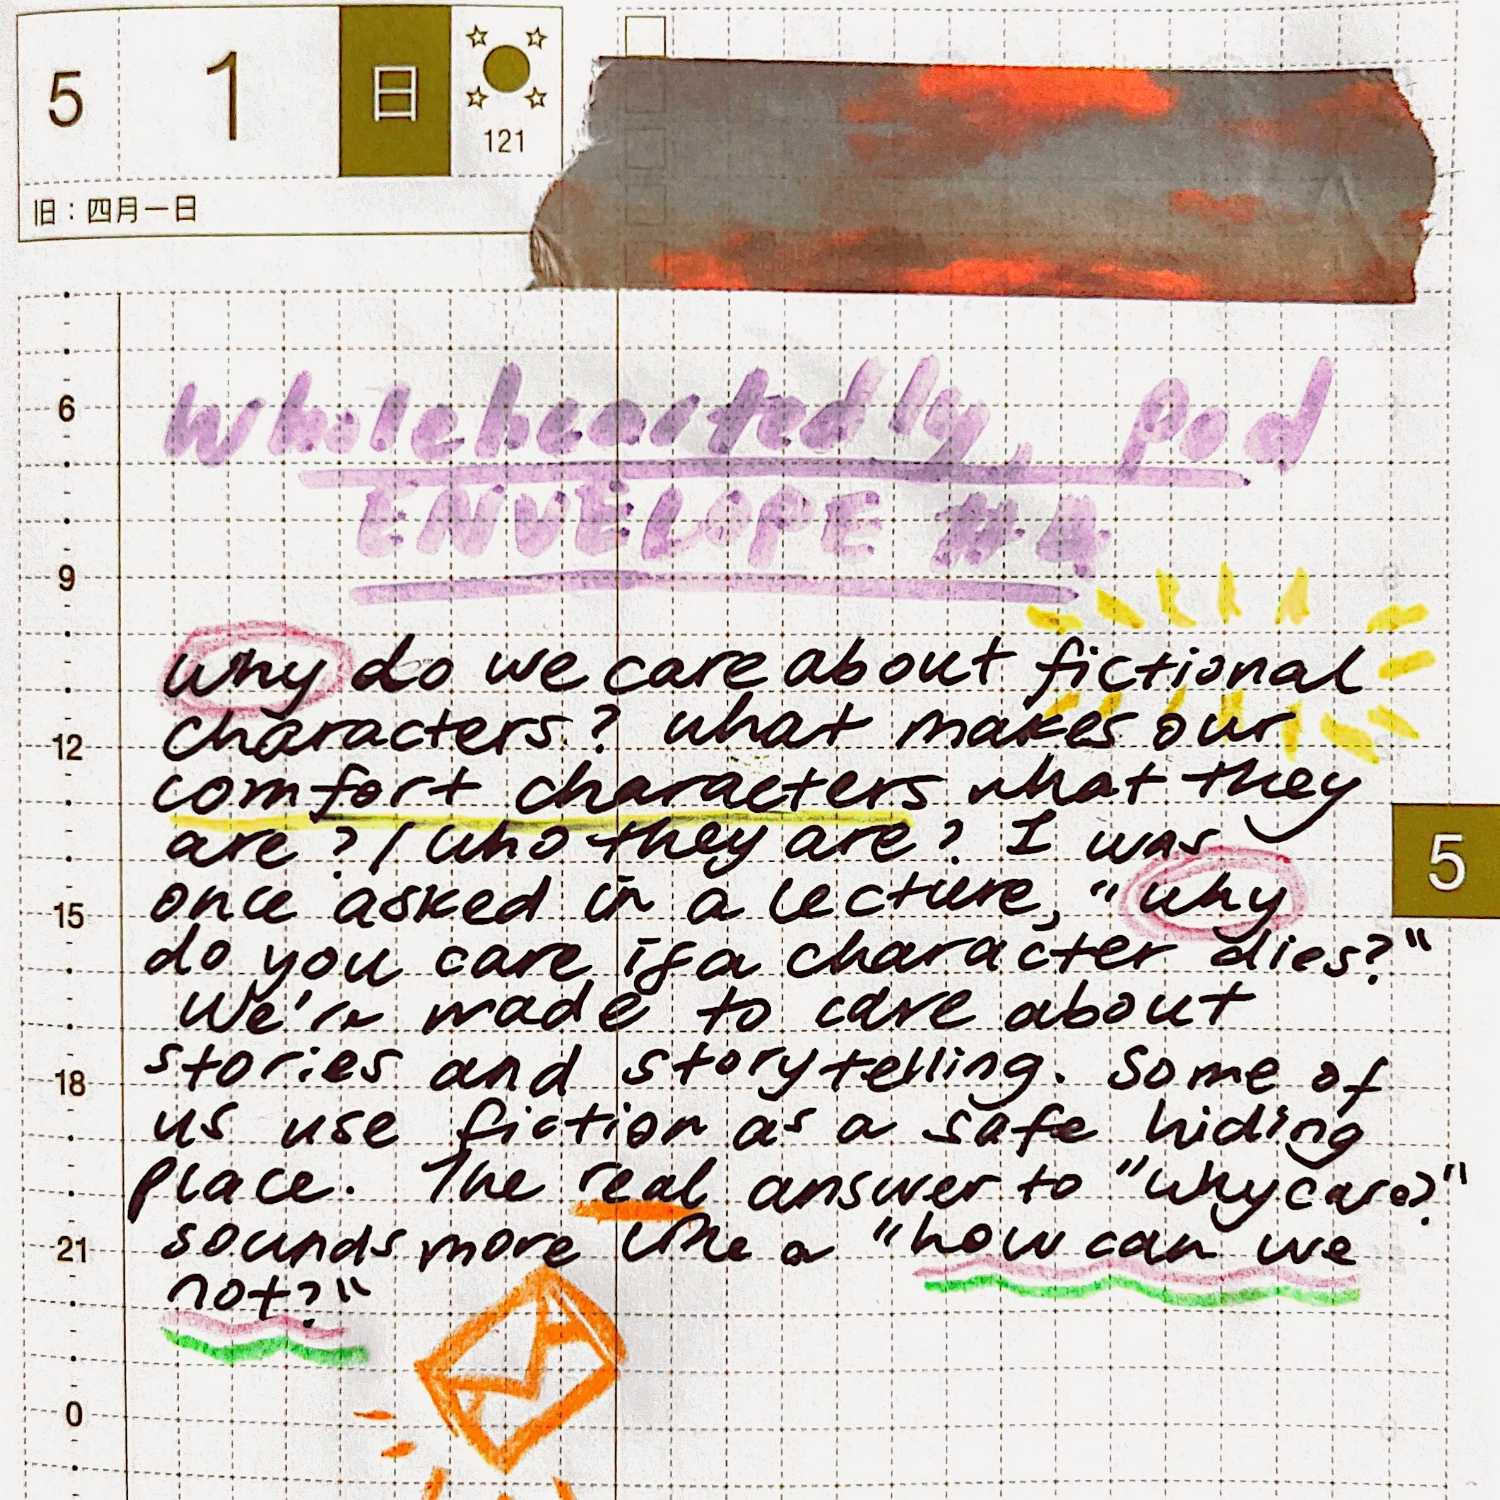 5 1 日
121
旧：四月一日
Wholeheartedly, Pod
ENVELOPE #4
6
9
12
15
18
21
0
5
why do we care about fictional
characters? what makes our
comfort characters what they
are? / who they are? I was
once asked in a lecture, "why
do you care if a character dies?"
We're made to care about
stories and storytelling. Some of
us use fiction as a safe hiding
place. The real answer to "why care?"
sounds more like a "how can we
not?"